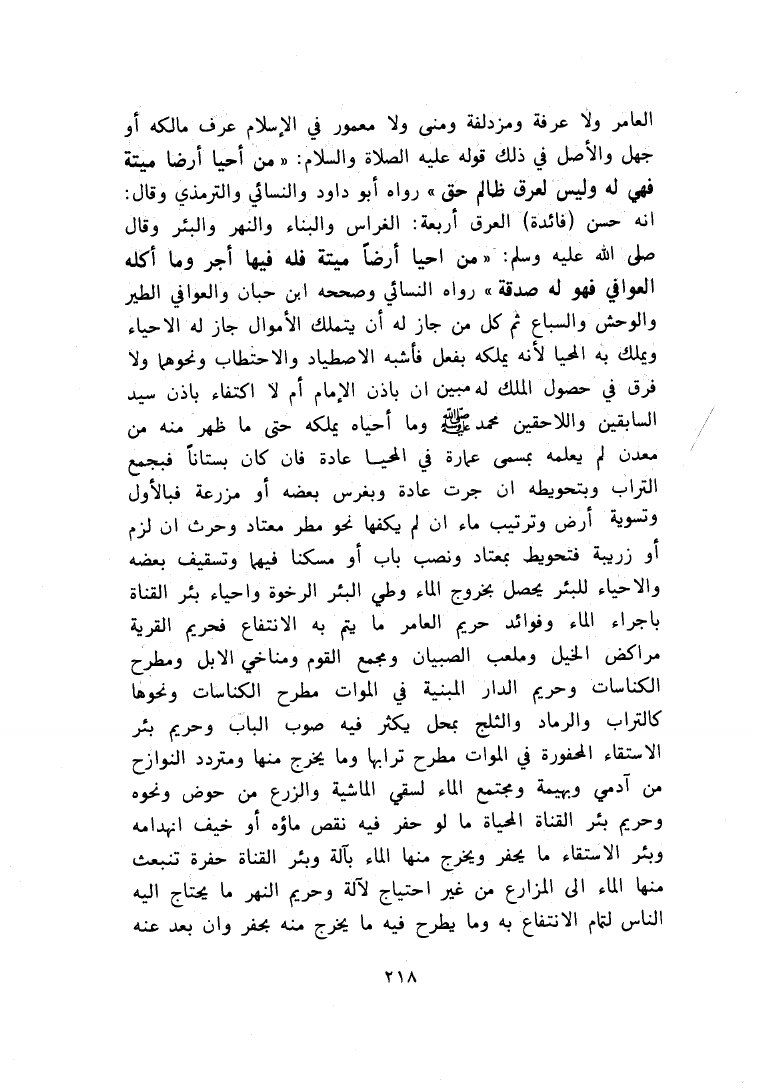 العامر ولا عرفة ومزدلفة ومنى ولا معمور في الإسلام عرف مالكه أو
جهل والأصل في ذلك قوله عليه الصلاة والسلام: « من أحيا أرضا ميتة
فهي له وليس لعرق ظالم حق » رواه أبو داود والنسائي والترمذي وقال:
انه حسن (فائدة) العرق أربعة: الغراس والبناء والنهر والبئر وقال
صلى الله عليه وسلم: « من احيا أرضاً ميتة فله فيها أجر وما أكله
العوافي فهو له صدقة » رواه النسائي وصححه ابن حبان والعوافي الطير
والوحش والسباع ثم كل من جاز له أن يتملك الأموال جاز له الاحياء
ويملك به المحيا لأنه يملكه بفعل فأشبه الاصطياد والاحتطاب ونحوهما ولا
فرق في حصول الملك له مبين ان باذن الإمام أم لا اكتفاء باذن سيد
السابقين واللاحقين محمد ﷺ وما أحياه يملكه حتى ما ظهر منه من
معدن لم يعلمه بمسمى عمارة في المحيا عادة فان كان بستاناً فبجمع
التراب وبتحويطه ان جرت عادة وبغرس بعضه أو مزرعة فبالأول
وتسوية أرض وترتيب ماء ان لم يكفها نحو مطر معتاد وحرث ان لزم
أو زريبة فتحويط بمعتاد ونصب باب أو مسكنا فبهما وتسقيف بعضه
والاحياء للبئر يحصل بخروج الماء وطي البئر الرخوة واحياء بئر القناة
باجراء الماء وفوائد حريم العامر ما يتم به الانتفاع فحريم القرية
مراكض الخيل وملعب الصبيان ومجمع القوم ومناخي الابل ومطرح
الكناسات وحريم الدار المبنية في الموات مطرح الكناسات ونحوها
كالتراب والرماد والثلج بمحل يكثر فيه صوب الباب وحريم بئر
الاستقاء المحفورة في الموات مطرح ترابها وما يخرج منها ومتردد النوازح
من آدمي وبهيمة ومجتمع الماء لسقي الماشية والزرع من حوض ونحوه
وحريم بئر القناة المحياة ما لو حفر فيه نقص ماؤه أو خيف انهدامه
وبئر الاستقاء ما يحفر ويخرج منها الماء بآلة وبئر القناة حفرة تنبعث
منها الماء الى المزارع من غير احتياج لآلة وحريم النهر ما يحتاج اليه
الناس لتمام الانتفاع به وما يطرح فيه ما يخرج منه بحفر وان بعد عنه
٢١٨